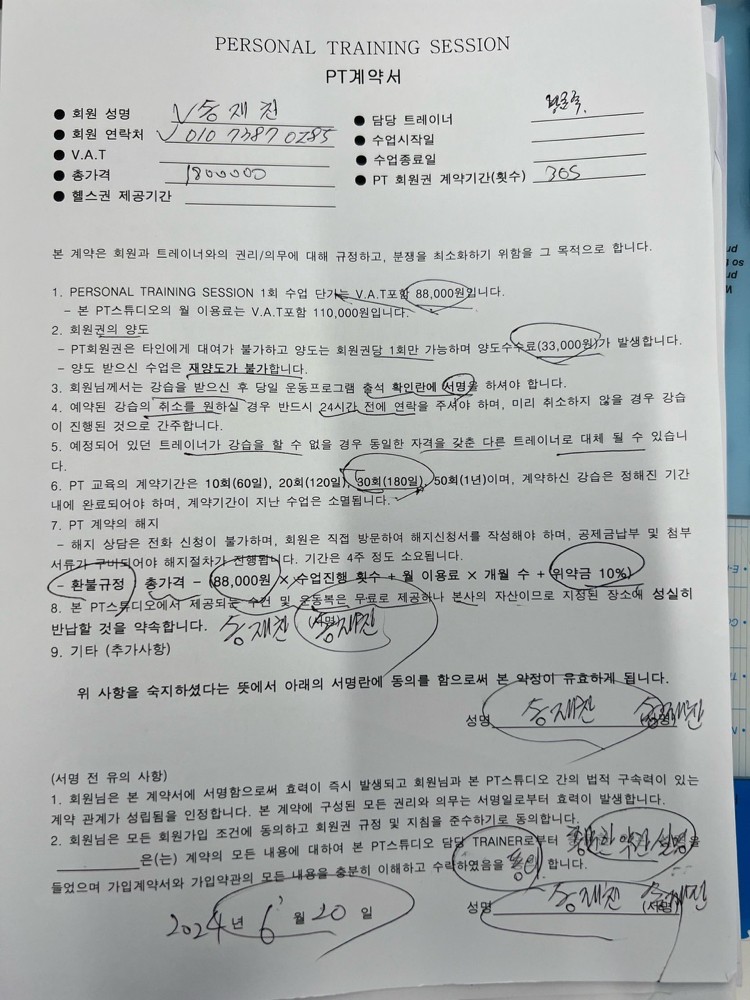 PERSONAL TRAINING SESSION
PT계약서
● 회원 성명 송재진
● 회원 연락처 010 7387 0285
● V.A.T
● 총가격 1800000
● 헬스권 제공기간
● 담당 트레이너
● 수업시작일
● 수업종료일
● PT 회원권 계약기간(횟수) 30S
본 계약은 회원과 트레이너와의 권리/의무에 대해 규정하고, 분쟁을 최소화하기 위함을 그 목적으로 합니다.
1. PERSONAL TRAINING SESSION 1회 수업 단가는 V.A.T포함 88,000원입니다.
- 본 PT스튜디오의 월 이용료는 V.A.T포함 110,000원입니다.
2. 회원권의 양도
- PT회원권은 타인에게 대여가 불가하고 양도는 회원권당 1회만 가능하며 양도수수료(33,000원)가 발생합니다.
- 양도 받으신 수업은 재양도가 불가합니다.
3. 회원님께서는 강습을 받으신 후 당일 운동프로그램 출석 확인란에 서명을 하셔야 합니다.
4. 예약된 강습의 취소를 원하실 경우 반드시 24시간 전에 연락을 주셔야 하며, 미리 취소하지 않을 경우 강습
이 진행된 것으로 간주합니다.
5. 예정되어 있던 트레이너가 강습을 할 수 없을 경우 동일한 자격을 갖춘 다른 트레이너로 대체 될 수 있습니
다.
6. PT 교육의 계약기간은 10회(60일), 20회(120일), 30회(180일), 50회(1년)이며, 계약하신 강습은 정해진 기간
내에 완료되어야 하며, 계약기간이 지난 수업은 소멸됩니다.
7. PT 계약의 해지
- 해지 상담은 전화 신청이 불가하며, 회원은 직접 방문하여 해지신청서를 작성해야 하며, 공제금납부 및 첨부
서류가 구비되어야 해지절차가 진행됩니다. 기간은 4주 정도 소요됩니다.
- 환불규정 총가격 - (88,000원 × 수업진행 횟수 + 월 이용료 × 개월 수 + 위약금 10%)
8. 본 PT스튜디오에서 제공되는 수건 및 운동복은 무료로 제공하나 본사의 자산이므로 지정된 장소에 성실히
반납할 것을 약속합니다. 송재진 (서명) 송재진
9. 기타 (추가사항)
위 사항을 숙지하셨다는 뜻에서 아래의 서명란에 동의를 함으로써 본 약정이 유효하게 됩니다.
성명 송재진 (서명) 송재진
(서명 전 유의 사항)
1. 회원님은 본 계약서에 서명함으로써 효력이 즉시 발생되고 회원님과 본 PT스튜디오 간의 법적 구속력이 있는
계약 관계가 성립됨을 인정합니다. 본 계약에 구성된 모든 권리와 의무는 서명일로부터 효력이 발생합니다.
2. 회원님은 모든 회원가입 조건에 동의하고 회원권 규정 및 지침을 준수하기로 동의합니다.
은(는) 계약의 모든 내용에 대하여 본 PT스튜디오 담당 TRAINER로부터 충분한 약관 설명을
들었으며 가입계약서와 가입약관의 모든 내용을 충분히 이해하고 수락하였음을 동의 합니다.
2024년 6월 20일
성명 송재진 (서명) 송재진